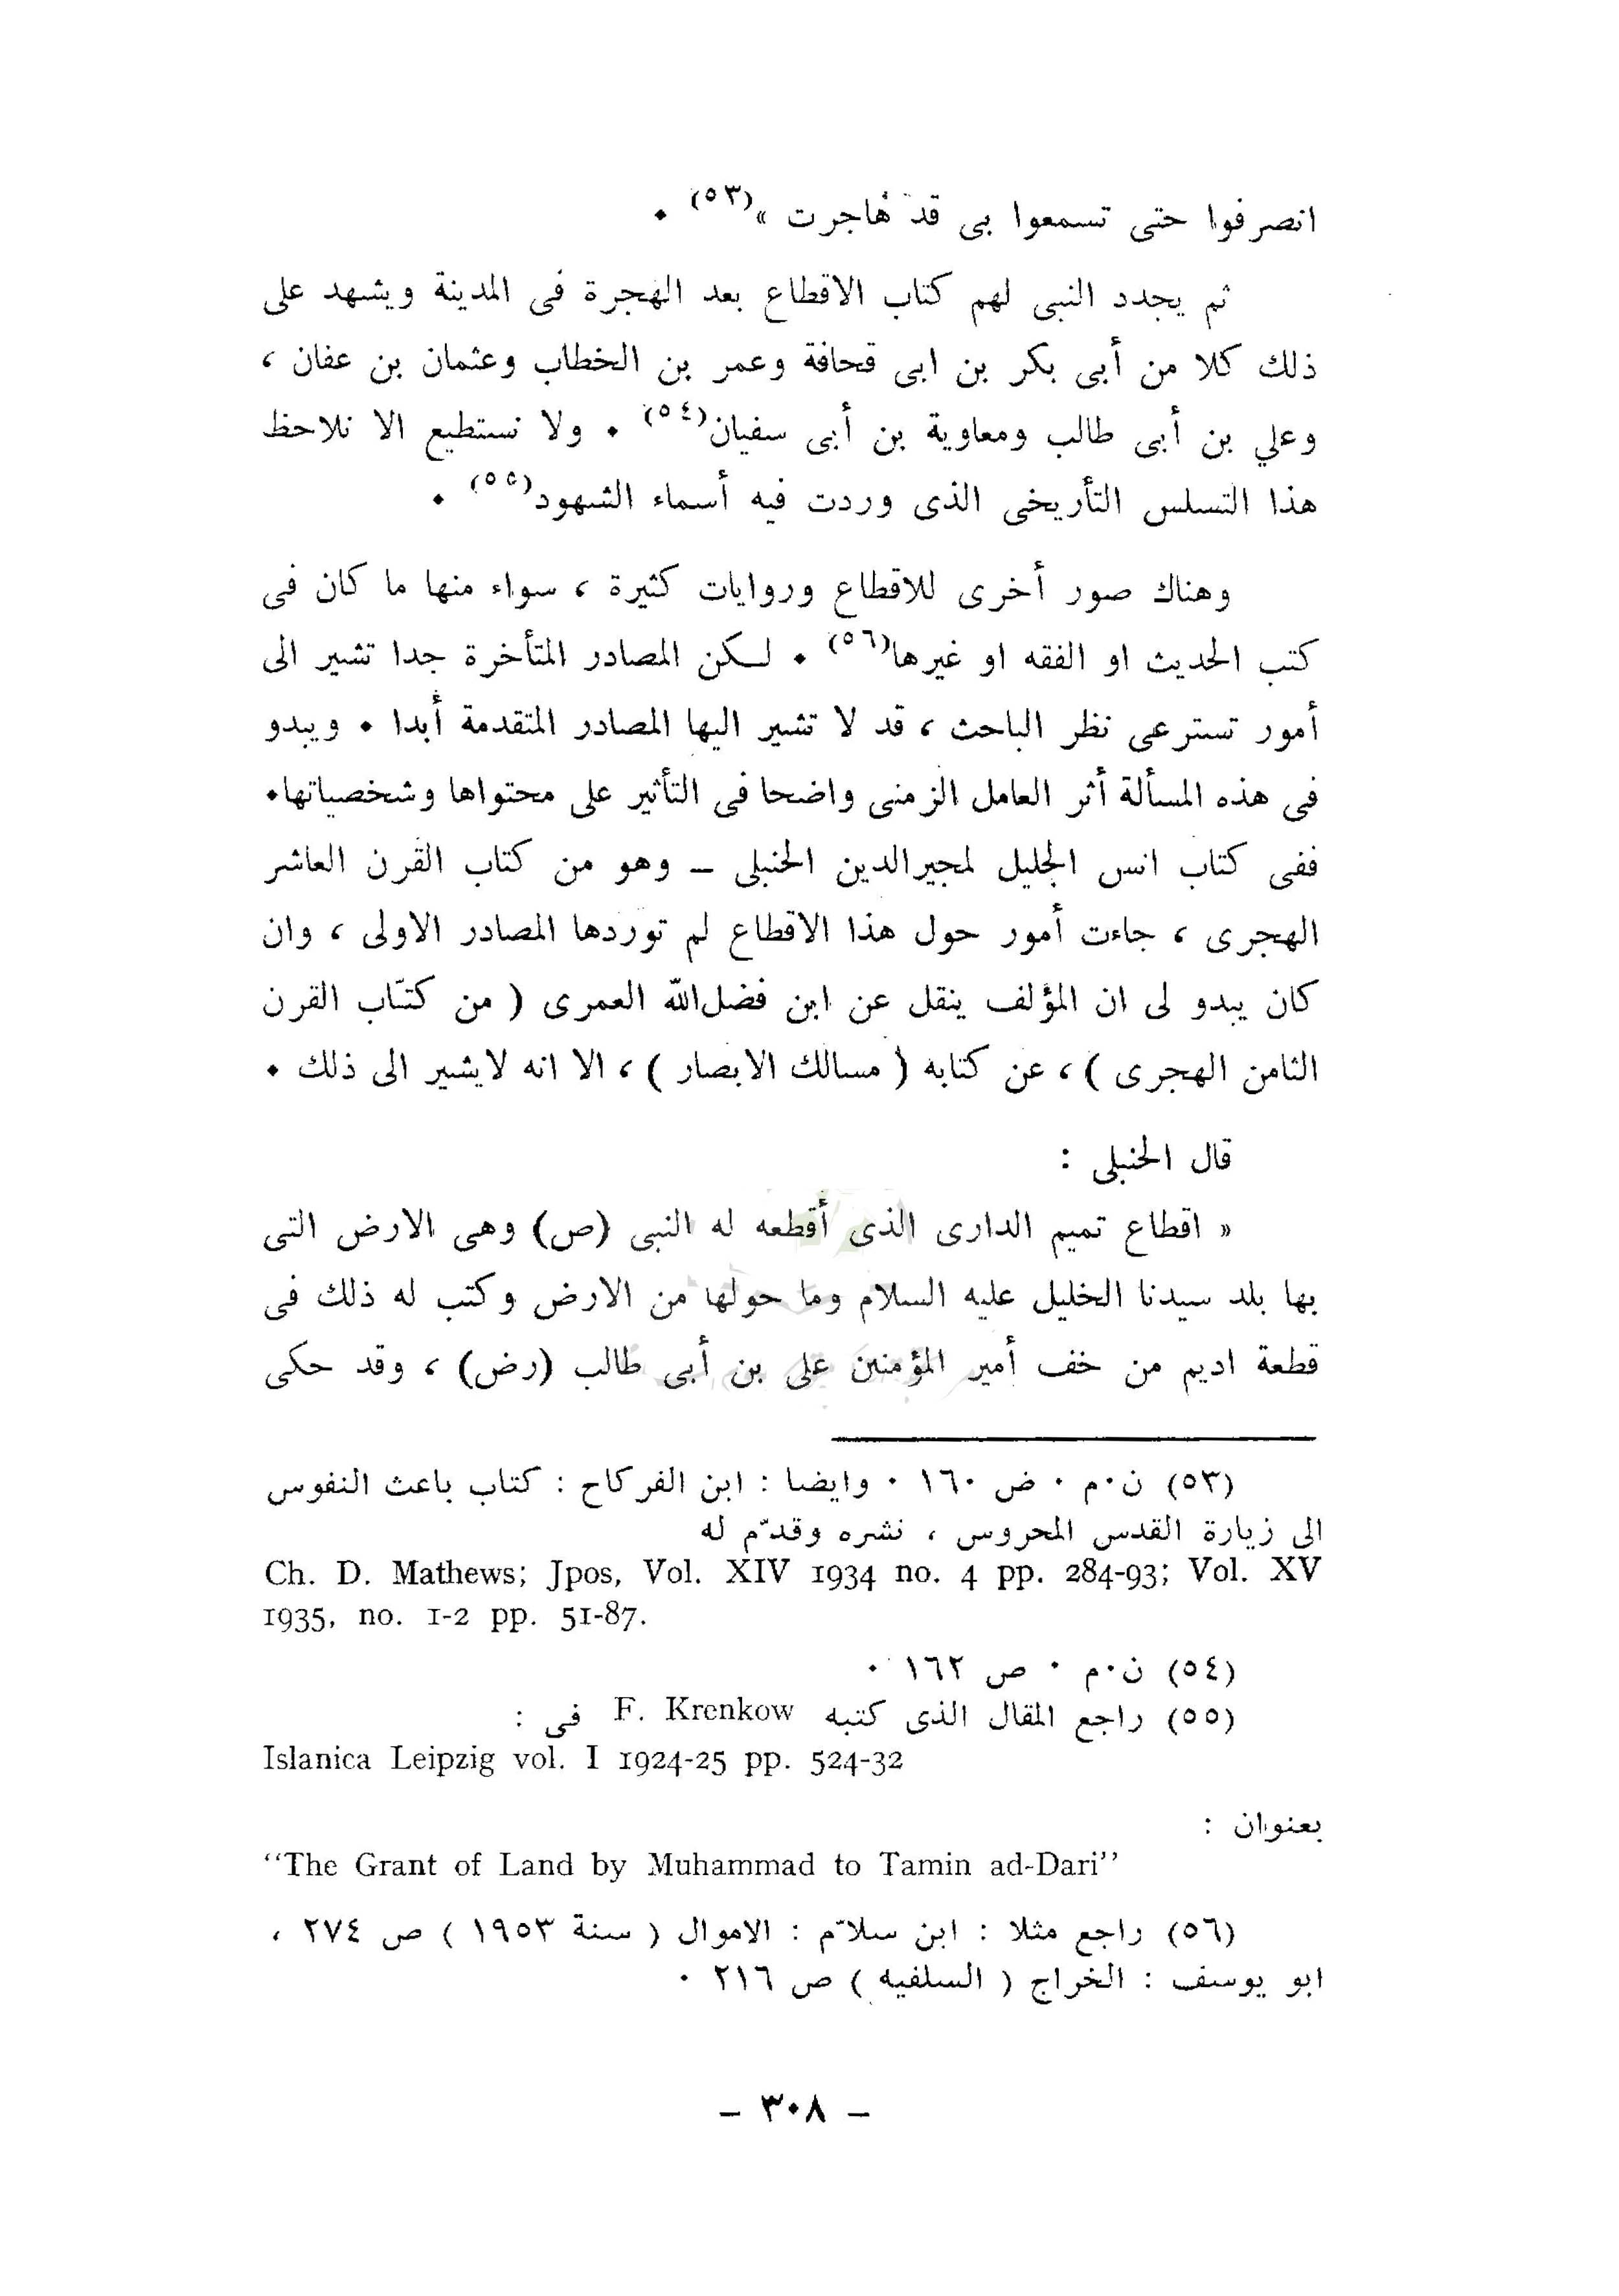 انصرفوا حتى تسمعوا بى قد هاجرت »(٥٣) ٠
ثم يجدد النبى لهم كتاب الاقطاع بعد الهجرة فى المدينة ويشهد على
ذلك كلا من أبى بكر بن ابى قحافة وعمر بن الخطاب وعثمان بن عفان ،
وعلي بن أبى طالب ومعاوية بن أبى سفيان(٥٤) ٠ ولا نستطيع الا نلاحظ
هذا التسلس التأريخى الذى وردت فيه أسماء الشهود(٥٥) ٠
وهناك صور أخرى للاقطاع وروايات كثيرة ، سواء منها ما كان فى
كتب الحديث او الفقه او غيرها(٥٦) ٠ لـكن المصادر المتأخرة جدا تشير الى
أمور تسترعى نظر الباحث ، قد لا تشير اليها المصادر المتقدمة أبدا ٠ ويبدو
فى هذه المسألة أثر العامل الزمنى واضحا فى التأثير على محتواها وشخصياتها٠
ففى كتاب انس الجليل لمجيرالدين الحنبلى – وهو من كتاب القرن العاشر
الهجرى ، جاءت أمور حول هذا الاقطاع لم توردها المصادر الاولى ، وان
كان يبدو لى ان المؤلف ينقل عن ابن فضل‌الله العمرى ( من كتّاب القرن
الثامن الهجرى ) ، عن كتابه ( مسالك الابصار ) ، الا انه لايشير الى ذلك ٠
قال الحنبلى :
« اقطاع تميم الدارى الذى أقطعه له النبى (ص) وهى الارض التى
بها بلد سيدنا الخليل عليه السلام وما حولها من الارض وكتب له ذلك فى
قطعة اديم من خف أمير المؤمنين على بن أبى طالب (رض) ، وقد حكى
(٥٣) ن٠م ٠ ض ١٦٠ ٠ وايضا : ابن الفركاح : كتاب باعث النفوس
الى زيارة القدس المحروس ، نشره وقدّم له
Ch. D. Mathews; Jpos, Vol. XIV 1934 no. 4 pp. 284-93; Vol. XV
1935, no. 1-2 pp. 51-87.
(٥٤) ن٠م ٠ ص ١٦٢ ٠
(٥٥) راجع المقال الذى كتبه F. Krenkow فى :
Islanica Leipzig vol. I 1924-25 pp. 524-32
بعنوان :
"The Grant of Land by Muhammad to Tamin ad-Dari"
(٥٦) راجع مثلا : ابن سلاّم : الاموال ( سنة ١٩٥٣ ) ص ٢٧٤ ،
ابو يوسف : الخراج ( السلفيه ) ص ٢١٦ ٠
– ٣٠٨ –